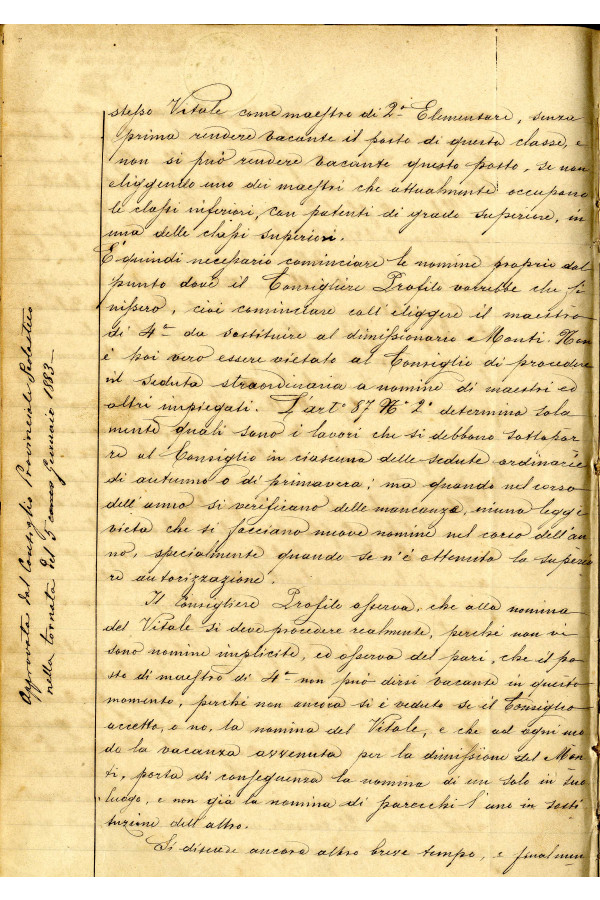 stesso Vitale come maestro di 2ª Elementare, senza
prima rendere vacante il posto di questa classe, e
non si può rendere vacante questo posto, se non
eliggendo uno dei maestri che attualmente occupano
le classi inferiori, con patenti di grado superiore, in
una delle classi superiori.
È quindi necessario cominciare le nomine proprio dal
punto dove il Consigliere Profilo vorrebbe che fi
nissero, cioè cominciare coll'eliggere il maestro
di 4ª da sostituire al dimissionario Monti. Non
è poi vero essere vietato al Consiglio di procedere
in seduta straordinaria a nomine di maestri ed
altri impiegati. L'art.º 87 Nº 2º determina sola
mente quali sono i lavori che si debbono sottopor
re al Consiglio in ciascuna delle sedute ordinarie
di autunno o di primavera; ma quando nel corso
dell'anno si verificano delle mancanze, niuna legge
vieta che si facciano nuove nomine nel corso dell'an
no, specialmente quando se n'è ottenuta la superio
re autorizzazione.
Il Consigliere Profilo osserva, che alla nomina
del Vitale si deve procedere realmente, perché non vi
sono nomine implicite, ed osserva del pari, che il po
sto di maestro di 4ª non può dirsi vacante in questo
momento, perché non ancora si è veduto se il Consiglio
accetta, o no, la nomina del Vitale, e che ad ogni mo
do la vacanza avvenuta per la dimissione del Mon
ti, porta di conseguenza la nomina di un solo in suo
luogo, e non già la nomina di parecchi l'uno in sosti
tuzione dell'altro.
Si discute ancora altro breve tempo, e finalmen
Approvata dal Consiglio Provinciale Scolastico
nella tornata del 5 Gennaio 1883